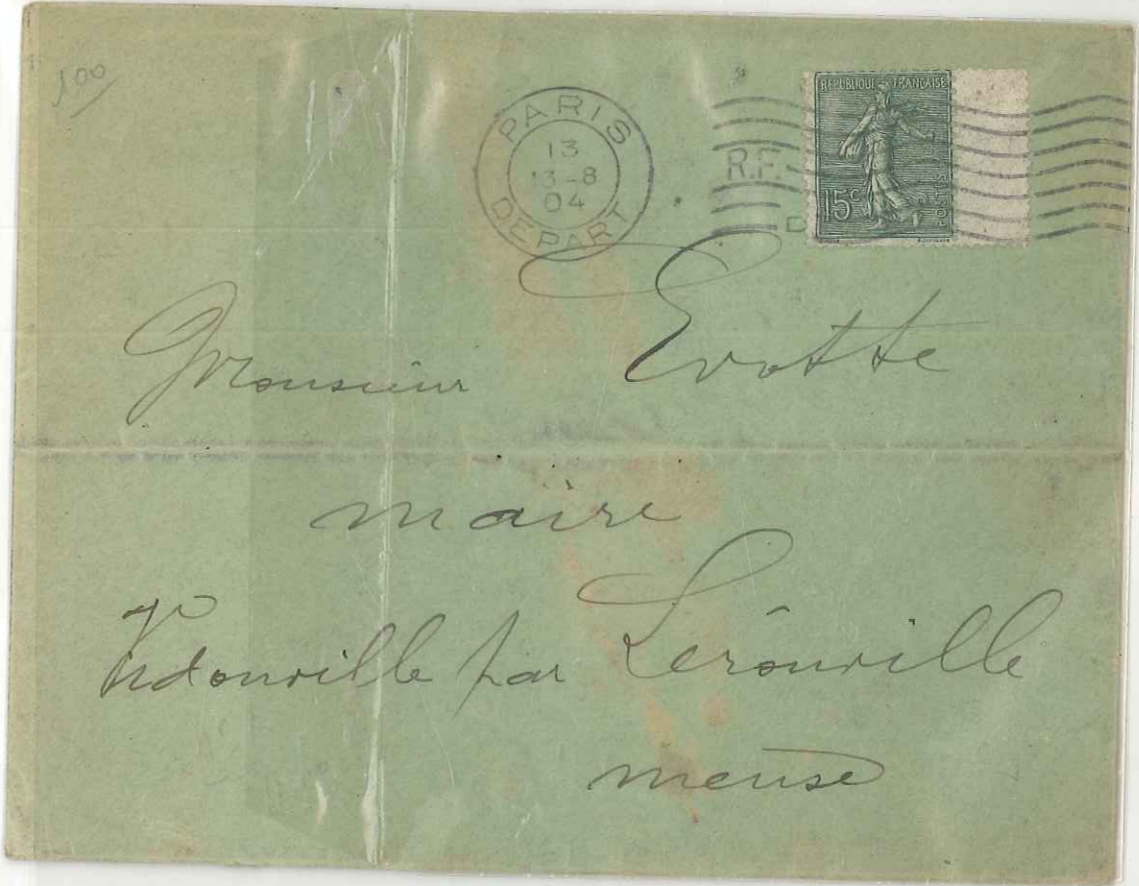 100
PARIS
13
13-8
04
DEPART
R.F.
D
REPUBLIQUE FRANÇAISE
15c
POSTES
Monsieur Evotte
maire
par Lérouville
meuse